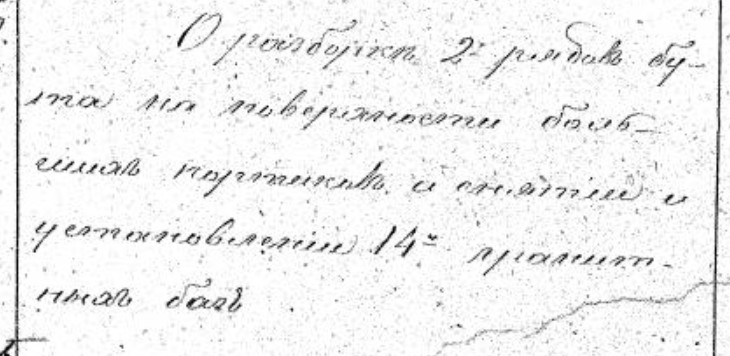 О разборкѣ 2х рядовъ бу-
та на поверхности боль-
шихъ портиковъ и снятіи и
установленіи 14и гранит-
ныхъ базъ